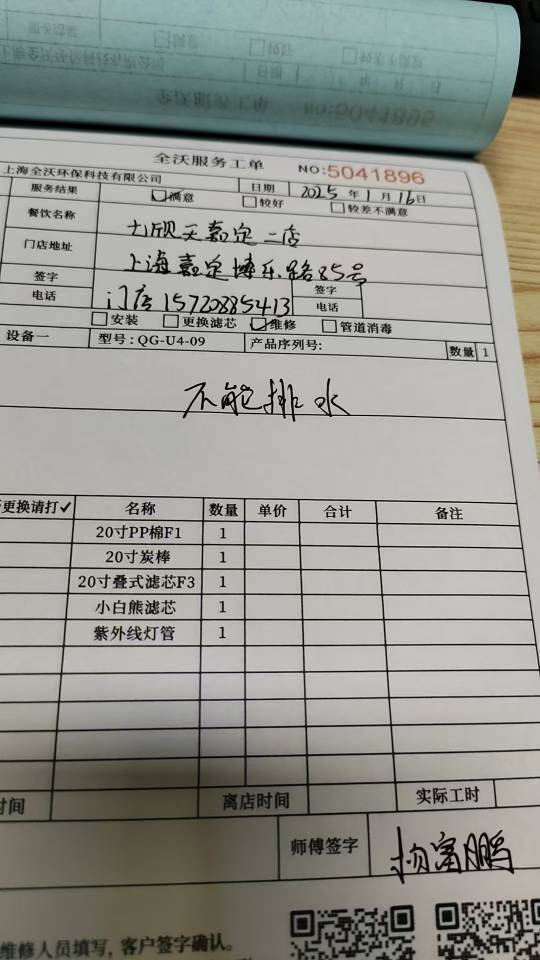 全沃服务工单 NO:5041896
上海全沃环保科技有限公司 日期 2025年1月16日
服务结果 满意 较好 较差不满意
餐饮名称 九欣天嘉定二店
门店地址 上海嘉定博乐路85号
签字 签字
电话 门店 15720885413 电话
安装 更换滤芯 维修 管道消毒
设备一 型号:QG-U4-09 产品序列号: 数量 1
不能排水
更换请打✓ 名称 数量 单价 合计 备注
20寸PP棉F1 1
20寸炭棒 1
20寸叠式滤芯F3 1
小白熊滤芯 1
紫外线灯管 1
时间 离店时间 实际工时
师傅签字 杨富鹏
维修人员填写,客户签字确认。